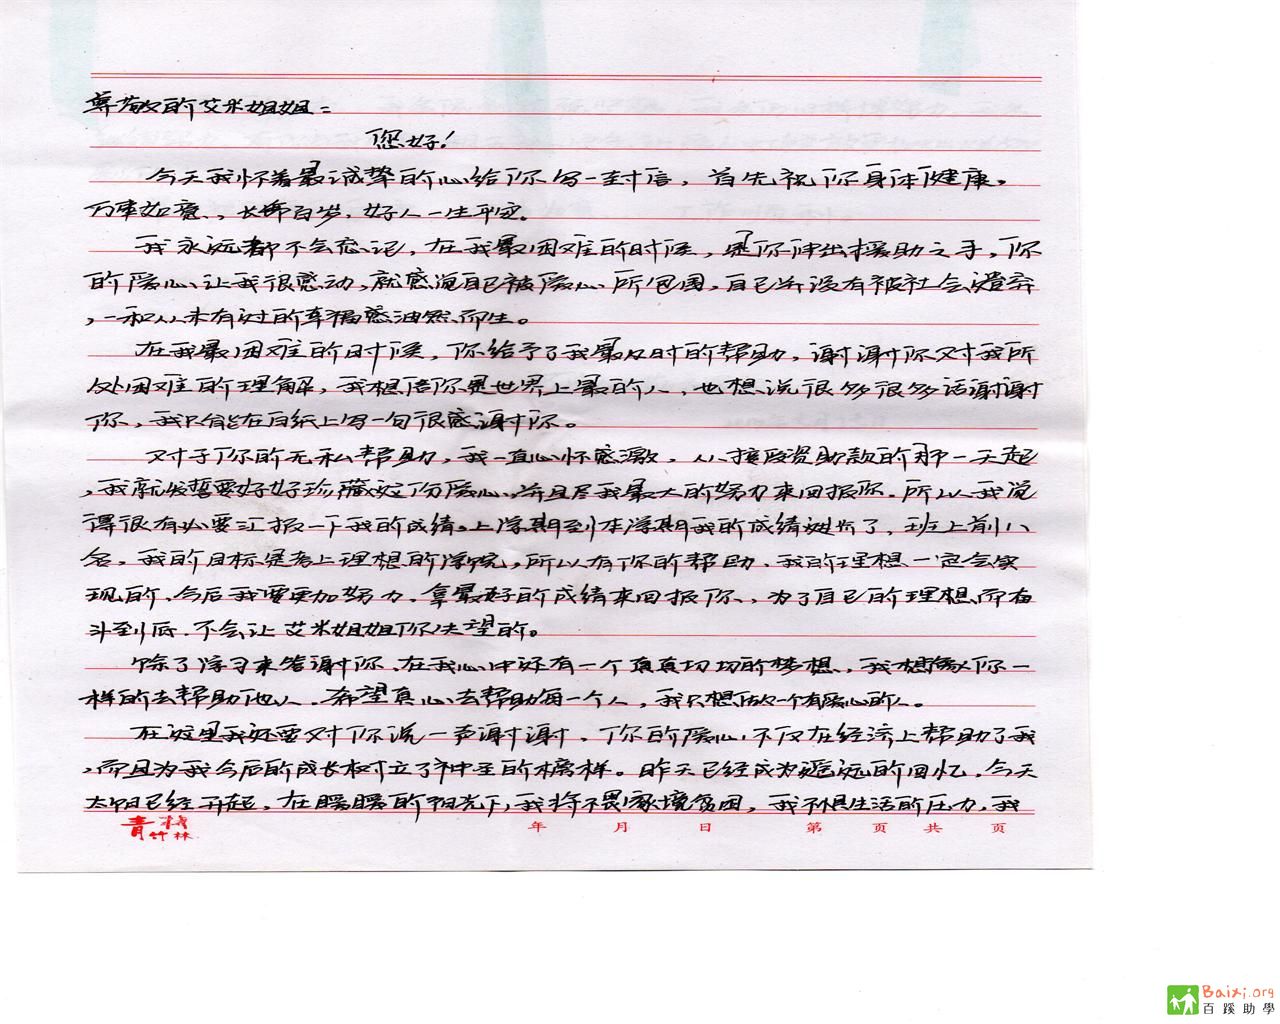 尊敬的艾米姐姐：
您好！
今天我怀着最诚挚的心给你写一封信，首先祝你身体健康，
万事如意、长命百岁，好人一生平安。
我永远都不会忘记，在我最困难的时候，是你伸出援助之手，你
的爱心让我很感动，就感觉自己被爱心所包围，自己并没有被社会遗弃
，一种从未有过的幸福感油然而生。
在我最困难的时候，你给予了我最及时的帮助，谢谢你对我所
处困难的理解，我想信你是世界上最的人，也想说很多很多话谢谢
你，我只能在白纸上写一句很感谢你。
对于你的无私帮助，我一直心怀感激，从接受资助款的那一天起
，我就发誓要好好珍藏这份爱心，并且尽我最大的努力来回报你。所以我觉
得很有必要汇报一下我的成绩。上学期到本学期我的成绩进步了，班上前八
名。我的目标是考上理想的学院，所以有你的帮助、我的理想一定会实
现的，今后我要更加努力，拿最好的成绩来回报你，为了自己的理想而奋
斗到底，不会让艾米姐姐你失望的。
除了学习来答谢你，在我心中还有一个真真切切的梦想，我想像你一
样的去帮助他人，希望真心去帮助每一个人，我只想做一个有爱心的人。
在这里我还要对你说一声谢谢，你的爱心，不仅在经济上帮助了我
，而且为我今后的成长树立了的榜样。昨天已经成为遥远的回忆，今天
太阳已经升起，在暖暖的阳光下，我将不畏家境贫困，我不惧生活的压力，我
青竹林
年 月 日 第 页 共 页
Baixi.org
百蹊助學